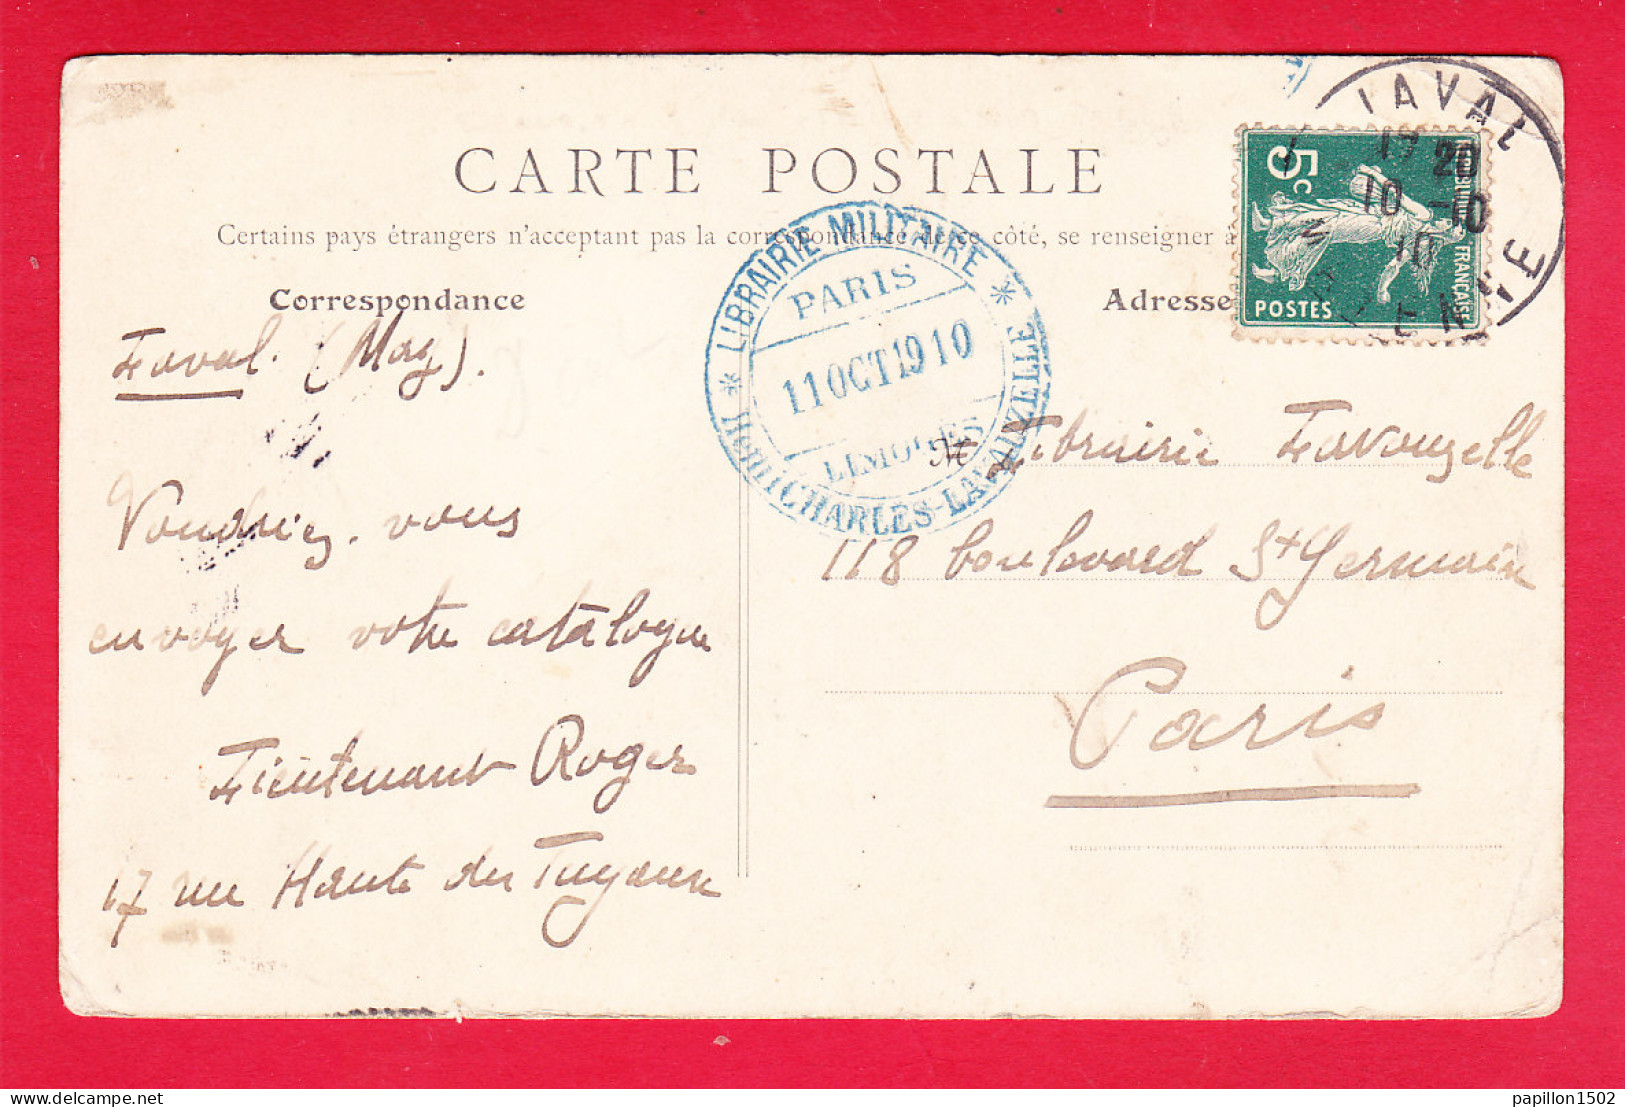 CARTE POSTALE
Certains pays étrangers n'acceptant pas la correspondance de ce côté, se renseigner à
Correspondance
Adresse
LAVAL
MAYENNE
19 20
10 -10
10
5c
RÉPUBLIQUE FRANÇAISE
POSTES
* LIBRAIRIE MILITAIRE *
Henri CHARLES-LAVAUZELLE
PARIS
11 OCT 1910
LIMOGES
Laval. (May).
Voudriez-vous
envoyer votre catalogue
Lieutenant Roger
17 rue Haute des Tuyaux
M Librairie Lavouzelle
118 boulevard St Germain
Paris
papillon1502